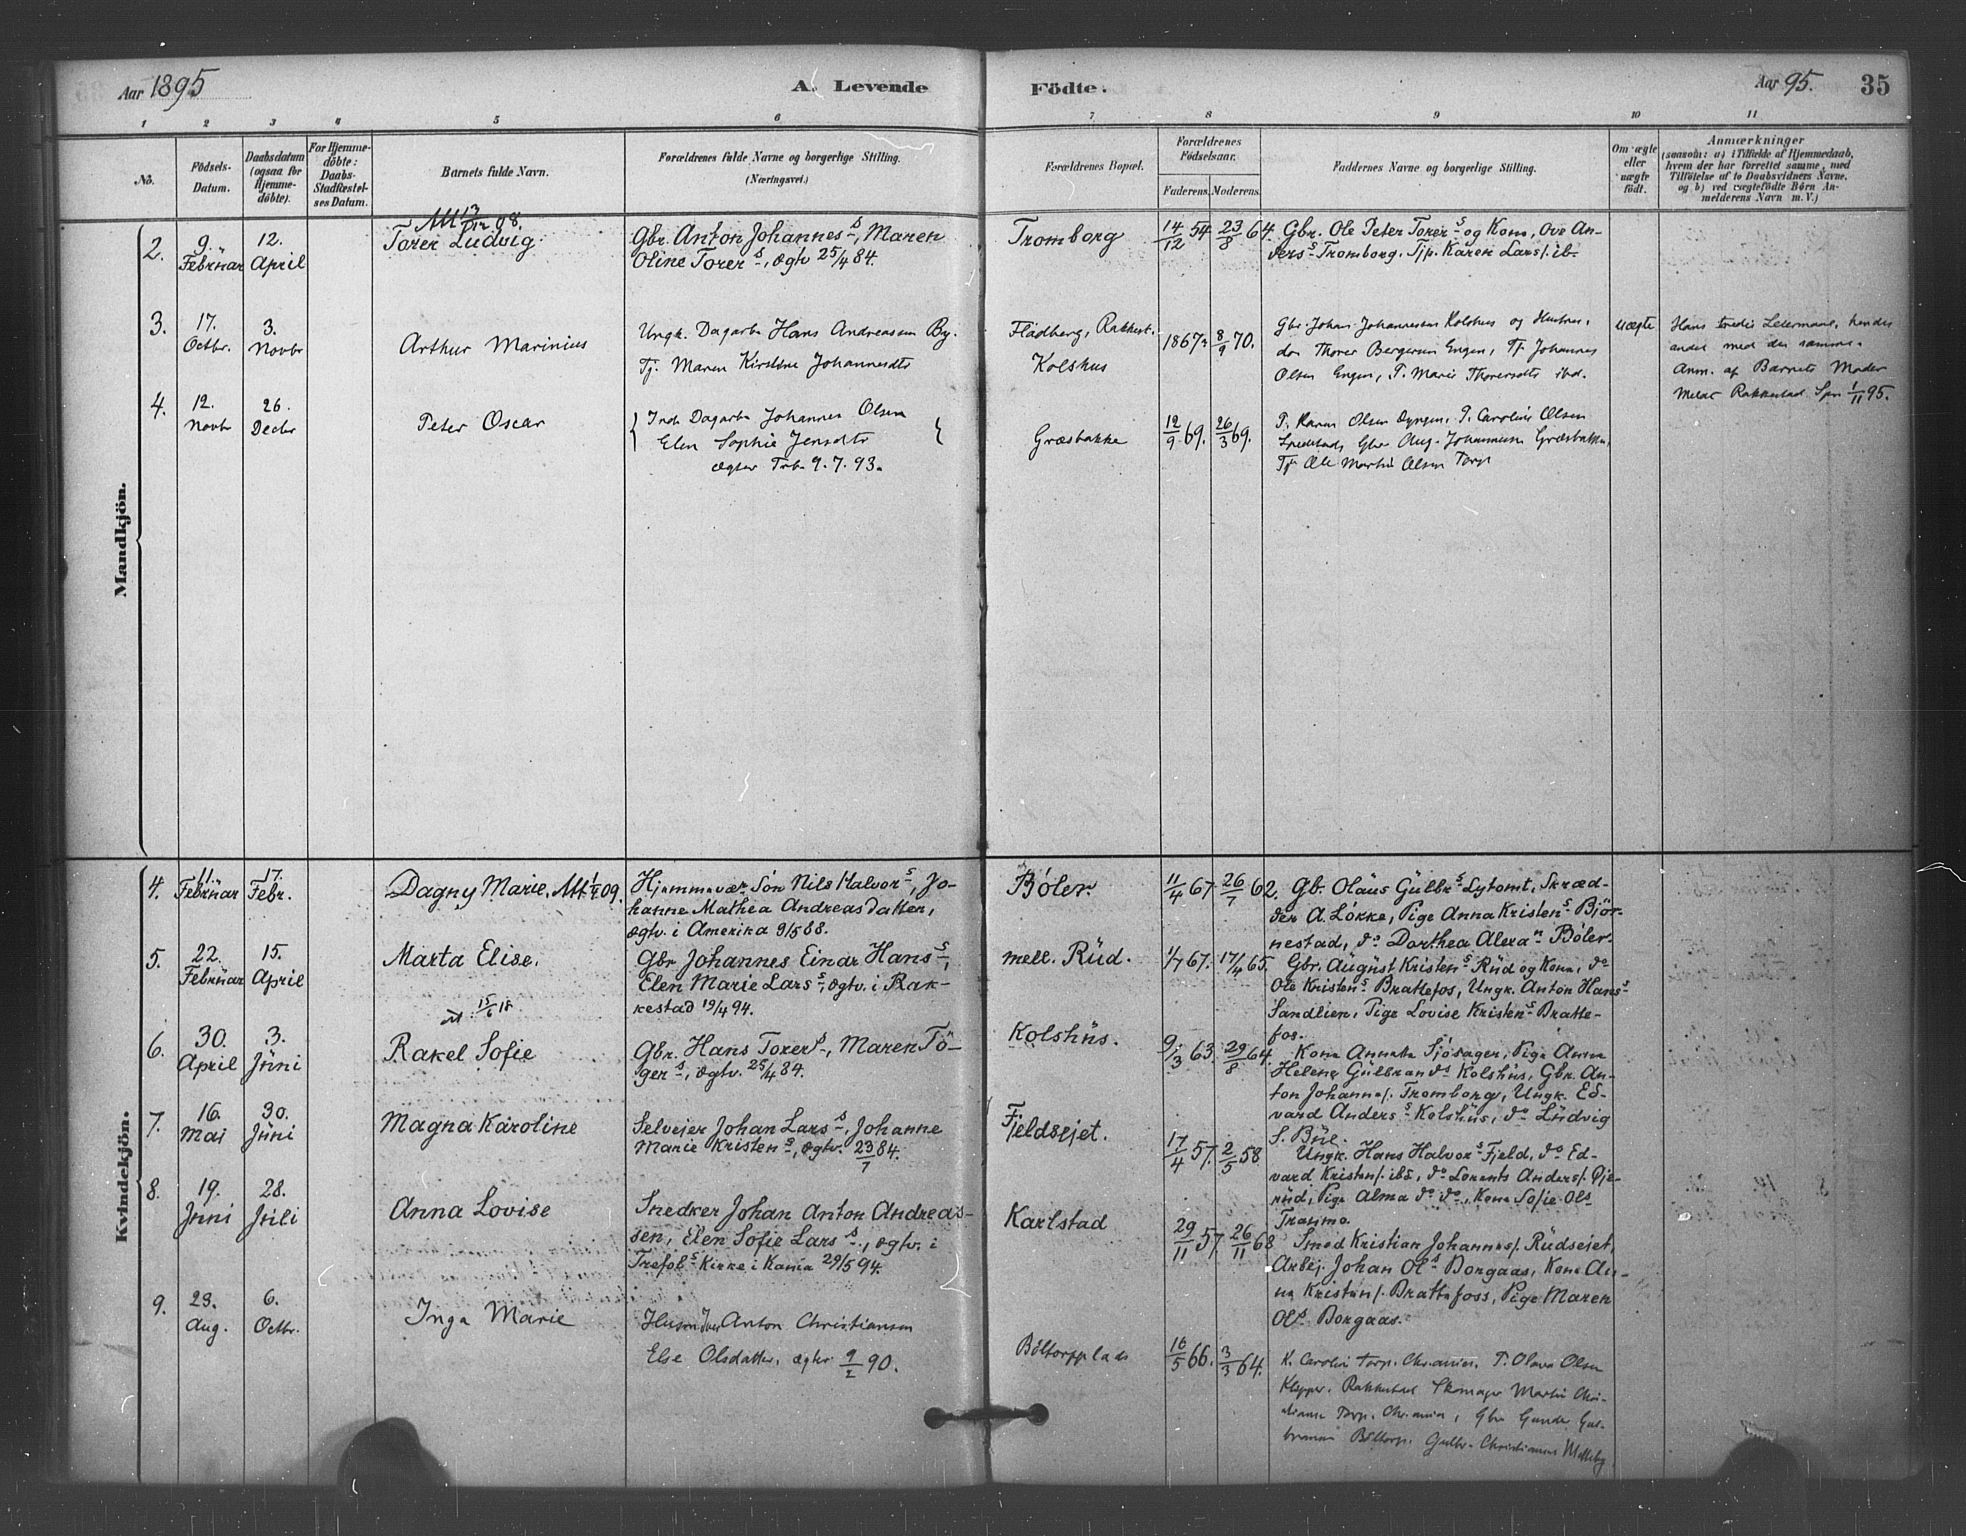 Aar 1895
A. Levende
Födte.
Aar 95.
35
1 2 3 4 5 6 7 8 9 10 11
No.
Födsels-
Datum.
Daabsdatum
(ogsaa for
Hjemme-
döbte).
For Hjemme-
döbte:
Daabs-
Stadfæstel-
ses Datum.
Barnets fulde Navn.
Forældrenes fulde Navne og borgerlige Stilling.
(Næringsvei.)
Forældrenes Bopæl.
Forældrenes
Födselsaar.
Faderens. Moderens.
Faddernes Navne og borgerlige Stilling.
Om ægte
eller
uægte
födt.
Anmærkninger
(saasom: a) i Tilfælde af Hjemmedaab,
hvem der har forrettet samme, med
Tilföielse af to Daabsvidners Navne,
og b) ved uægtefödte Börn An-
melderens Navn m. V.)
Mandkjön.
2.
9.
Februar
12.
April
Att 13/12 08.
Torer Ludvig
Gbr. Anton Johannes s, Maren
Oline Torer s, ægtv 25/4 84.
Tromborg
14/12 54
23/8 64.
Gbr. Ole Peter Torer s og Kone, Ove An-
ders s Tromborg. Tjp. Karen Lars/. ib.
3.
17.
Octbr.
3.
Novbr
Arthur Marinius
Ungk. Dagarb Hans Andreassen By.
Tj. Maren Kirstine Johannesdtr
Fladberg, Rakkest.
Kolshus
1867
8/9 70.
Gbr. Johan Johannesen Kolshus og Hustru,
do Thorer Bergersen Engen, Tj. Johannes
Olsen Engen, P. Marie Thorersdtr ibd.
uægte
Hans tredie Leiermaal, hendes
andet med den samme.
Anm. af Barnets Moder
Meldt Rakkestad Spr. 1/11 95.
4.
12.
Novbr
26.
Decbr
Peter Oscar
Indr Dagarb Johannes Olsen
Elen Sophie Jensdtr
ægtev Trb. 9.7.93.
Græsbakke
12/9 69.
26/3 69.
P. Karen Olsen P. Caroline Olsen
Gbr Aug. Johannesen Græsbakke,
Tj. Ole Martin Olsen Torp
Kvindekjön.
4.
11.
Februar
17.
Febr.
Dagny Marie. Att 1/5 09.
Hjemmevær. Søn Nils Halvor s, Jo-
hanne Mathea Andreasdatter,
ægtv. i Amerika 9/5 88.
Bøler
11/4 67.
26/7 62.
Gb. Olaus Gulbr s Lytomt, Skræd-
der A. Løkke, Pige Anna Kristen s Bjør-
nestad, do Dorthea Alexa n Bøler.
5.
22.
Februar
15.
April
Marta Elise.
Gbr Johannes Einar Hans s,
Elen Marie Lars s, ægtv. i Rak-
kestad 19/4 94.
mell. Rud.
1/7 67.
17/4 65.
Gbr. August Kristen s Rud og Kone, do
Ole Kristen s Brattefos, Ungk. Anton Hans s
Sandlien, Pige Lovise Kristen s Bratte-
fos.
6.
30.
April
3.
Juni
att. 15/6 18
Rakel Sofie
Gbr. Hans Torer s, Maren Tö-
ger s, ægtv. 25/4 84.
Kolshus.
9/3 63.
29/8 64.
Kone Annette Sjøsager, Pige Anna
Helene Gulbrand s Kolshus, Gbr. An-
ton Johanne/. Tromborg, Ungk. Ed-
vard Anders s Kolshus, do Ludvig
S. Bue.
7.
16.
Mai
30.
Juni
Magna Karoline
Selveier Johan Lars s, Johanne
Marie Kristen s, ægtv. 23/7 84.
Fjeldsejet.
17/4 57.
2/5 58
Ungk. Hans Halvor s Fjeld, do Ed-
vard Kristen/. ibd, do Lorents Anders/. Gje-
rud, Pige Alma do do, Kone Sofie Ols
8.
19.
Juni
28.
Juli
Anna Lovise
Snedker Johan Anton Andreas-
sen, Elen Sofie Lars s, ægtv. i
Trefol s Kirke i Kania 29/5 94.
Karlstad
29/11 57.
26/11 68
Smed Kristian Johannes/. Rudseiet,
Arbej. Johan Ol s Borgaas, Kone An-
na Kristen/. Brattefoss, Pige Maren
Ol s Borgaas.
9.
23.
Aug.
6.
Octbr.
Inga Marie
Husm. Anton Christiansen
Else Olsdatter, ægtev 9/2 90.
Böltorpplads
16/5 66.
3/3 64.
K. Caroline Torp. Chr.ania. P. Olava Olsen
Klypper. Rakkestad Skomager Martin Chri-
stiansen Torp. Chr.ania, Gbr Gunder Gul-
bransen Böltorp. Gulbr. Christiansen Melleby